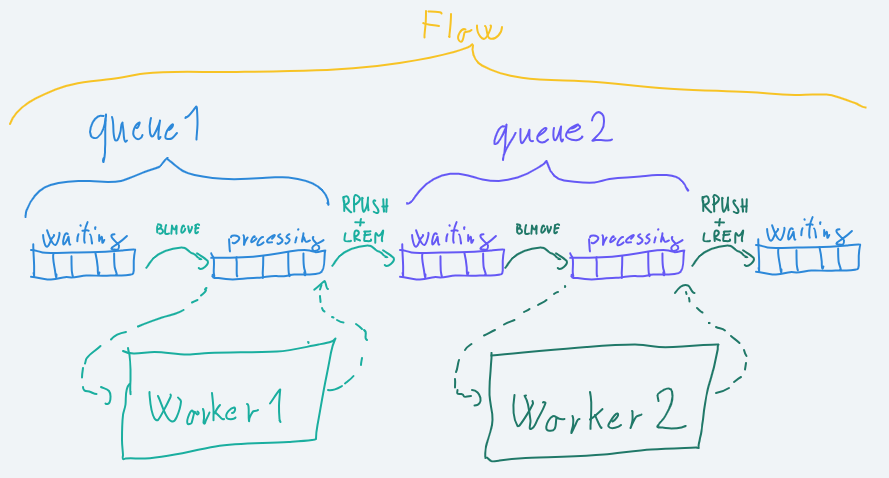 Flow
queue1
queue2
waiting
BLMOVE
processing
RPUSH
+
LREM
waiting
BLMOVE
processing
RPUSH
+
LREM
waiting
Worker1
Worker2